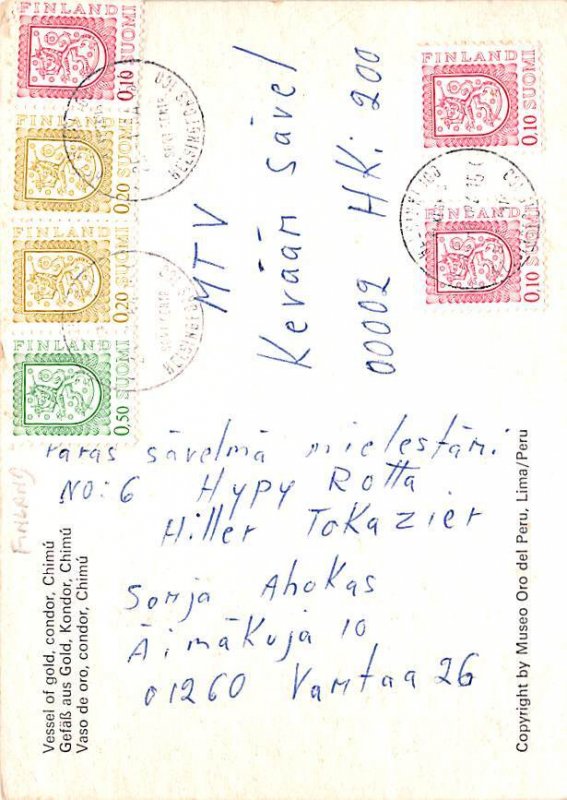 FINLAND
0,10 SUOMI
FINLAND
0,20 SUOMI
FINLAND
0,20 SUOMI
FINLAND
0,50 SUOMI
FINLAND
0,10 SUOMI
FINLAND
0,10 SUOMI
MTV
Kevään sävel
00002 HKi 200
Paras sävelmä mielestäni
NO: 6 Hypy Rotta
Hiller Tokazier
Sonja Ahokas
Äimäkuja 10
01260 Vantaa 26
FINLAND
Vessel of gold, condor, Chimú
Gefäß aus Gold, Kondor, Chimú
Vaso de oro, condor, Chimú
Copyright by Museo Oro del Peru, Lima/Peru